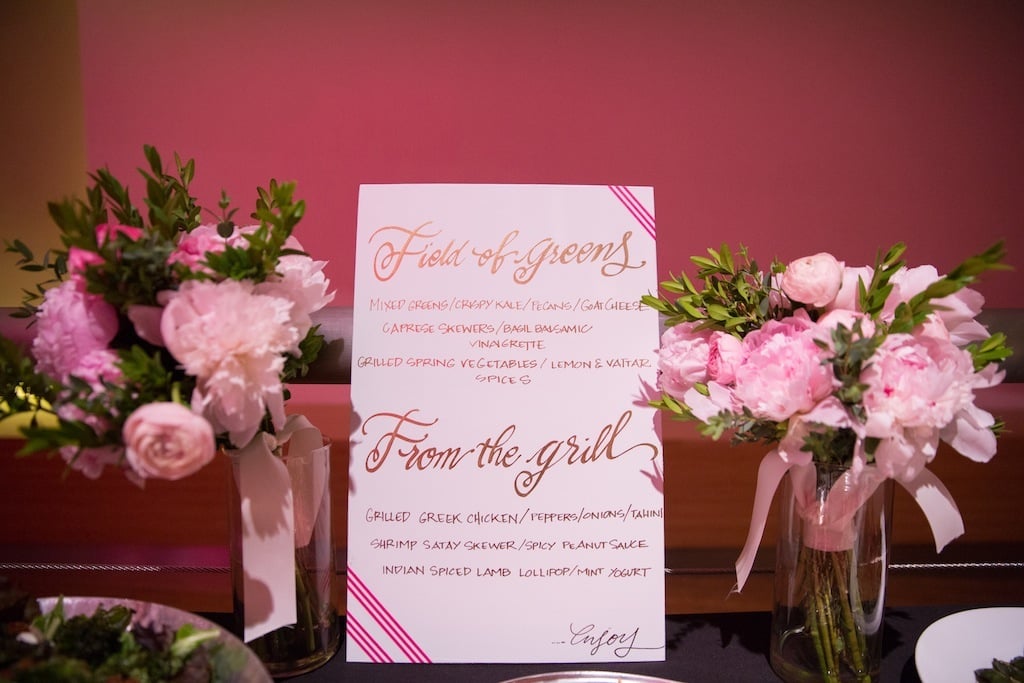 Field of greens
MIXED GREENS/CRISPY KALE/PECANS/GOAT CHEESE
CAPRESE SKEWERS/BASIL BALSAMIC
VINAIGRETTE
GRILLED SPRING VEGETABLES/LEMON & VATTAR
SPICES
From the grill
GRILLED GREEK CHICKEN/PEPPERS/ONIONS/TAHINI
SHRIMP SATAY SKEWER/SPICY PEANUT SAUCE
INDIAN SPICED LAMB LOLLIPOP/MINT YOGURT
...Enjoy